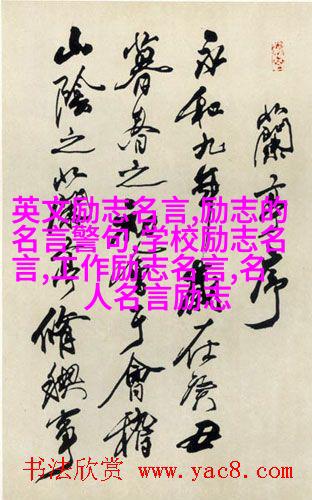 蘭亭序
永和九年歲在癸丑
暮春之初會于會稽
山陰之蘭亭脩禊事
英文励志名言,励志的
名言警句,学校励志名
言,工作励志名言,名
人名言励志
书法欣赏 www.yac8.com